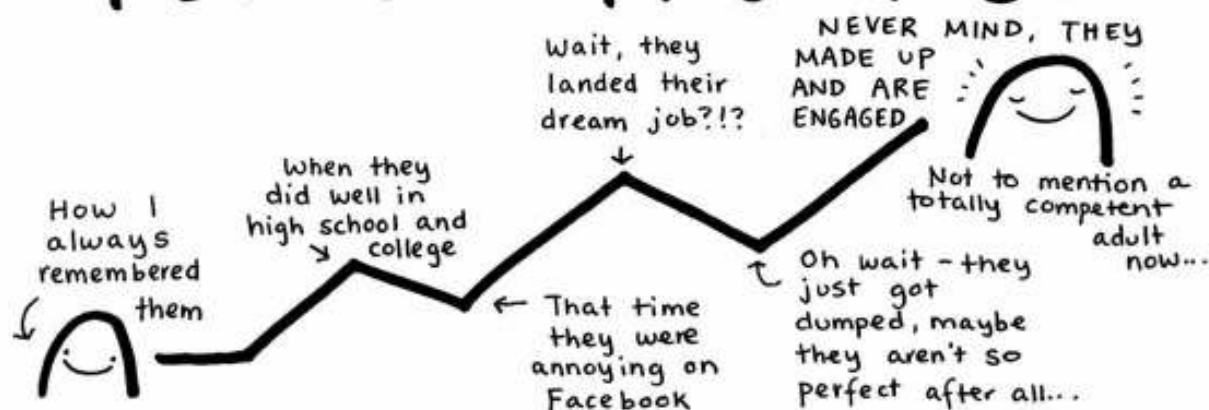 How I
always
remembered
them
When they
did well in
high school and
college
That time
they were
annoying on
Facebook
Wait, they
landed their
dream job?!?
Oh wait - they
just got
dumped, maybe
they aren't so
perfect after all...
NEVER MIND, THEY
MADE UP
AND ARE
ENGAGED
Not to mention a
totally competent
adult
now...